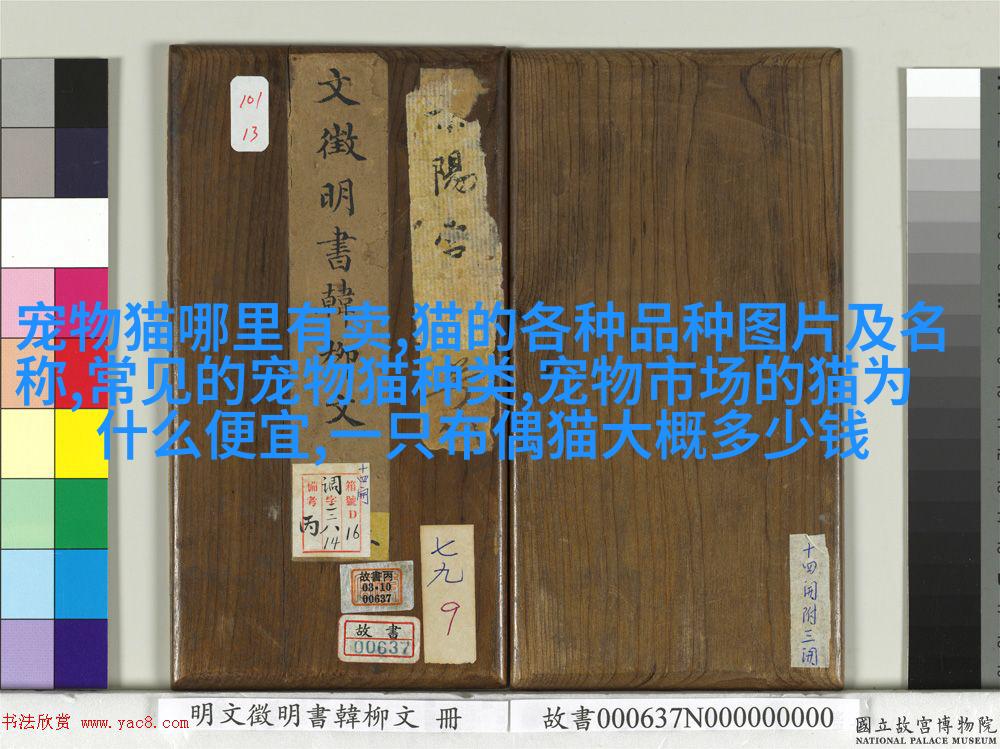 宠物猫哪里有卖,猫的各种品种图片及名
称,常见的宠物猫种类,宠物市场的猫为
什么便宜,一只布偶猫大概多少钱
101
13
文徵明書韓柳文
陽宫
十四開
備考
丙
调字三八14
箱號D16
故書丙
03·10
00637
故書
00637
七九
9
十四開附三開
明文徵明書韓柳文 冊
故書000637N000000000
國立故宮博物院
NATIONAL PALACE MUSEUM
书法欣赏 www.yac8.com